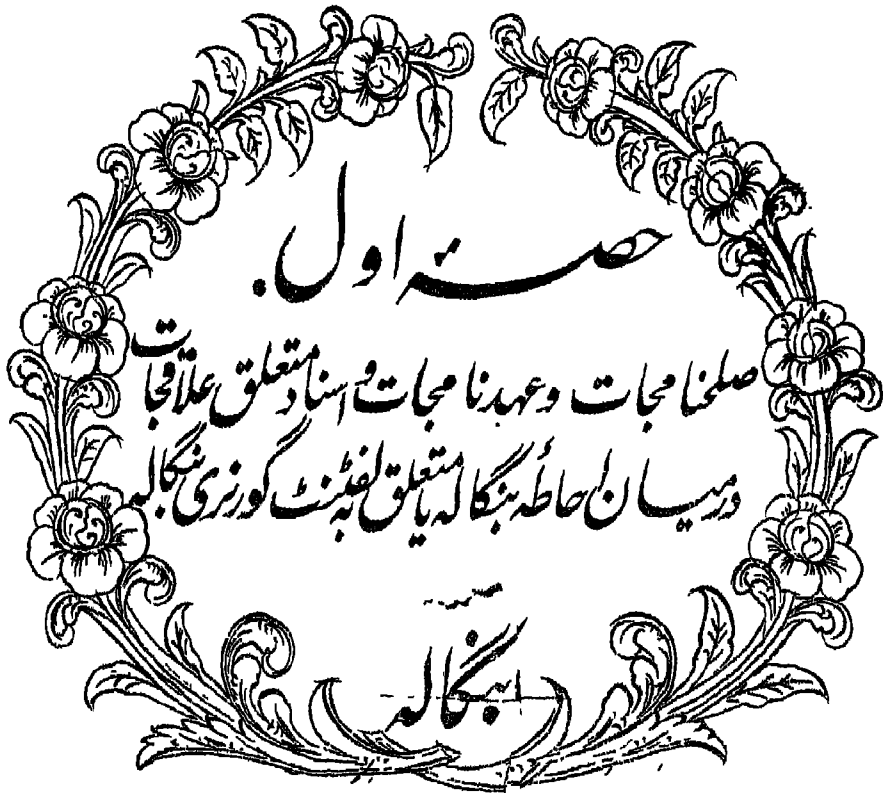 حصہ اول.
صلحنامجات وعہدنامجات و اسناد متعلق علاقجات
درمیان احاطۂ بنگالہ یا متعلق بہ لفٹنٹ گورنری بنگالہ
بنگالہ